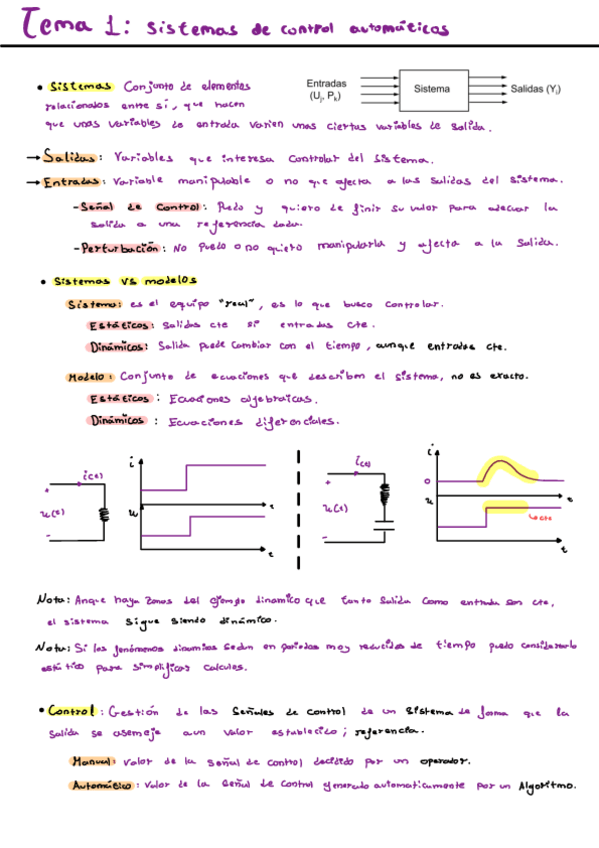 Tema 1: Sistemas de control automáticos
• Sistemas Conjunto de elementos
relacionados entre sí, que hacen
que unas variables de entrada varien unas ciertas variables de salida.
Entradas
(Uj, Pk)
Sistema
Salidas (Yi)
→ Salidas: Variables que interesa controlar del sistema.
→ Entradas: Variable manipulable o no que afecta a las salidas del sistema.
- Señal de Control: Puedo y quiero definir su valor para adecuar la
salida a una referencia dada.
- Perturbación: No puedo o no quiero manipularla y afecta a la salida.
• Sistemas vs modelos
Sistema: es el equipo "real", es lo que busco controlar.
Estáticos: Salidas cte si entradas cte.
Dinámicos: Salida puede cambiar con el tiempo, aunque entradas cte.
Modelo: Conjunto de ecuaciones que describen el sistema, no es exacto.
Estáticos: Ecuaciones algebraicas.
Dinámicos: Ecuaciones diferenciales.
i(t)
+
u(t)
-
i
t
u
t
i(t)
+
u(t)
-
i
0
t
u
→ cte
t
Nota: Aunque haya zonas del ejemplo dinamico que tanto salida como entrada son cte,
el sistema sigue siendo dinámico.
Nota: Si los fenómenos dinamicos se dan en periodos muy reducidos de tiempo puedo considerarlo
estático para simplificar calculos.
• Control: Gestión de las señales de control de un sistema de forma que la
salida se asemeje a un valor establecido; referencia.
Manual: valor de la señal de control decidido por un operador.
Automático: valor de la señal de control generado automaticamente por un Algoritmo.